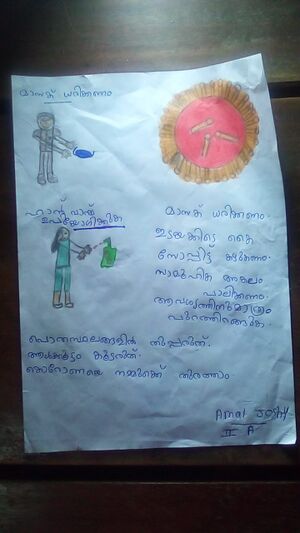 മാസ്ക് ധരിക്കണം
ഹാന്റ് വാഷ്
ഉപയോഗിക്കുക
മാസ്ക് ധരിക്കണം.
ഇടയ്ക്കിടെ കൈ
സോപ്പിട്ട് കഴുകണം.
സാമൂഹിക അകലം
പാലിക്കണം.
ആവശ്യത്തിനുമാത്രം
പുറത്തിറങ്ങുക.
പൊതുസ്ഥലങ്ങളിൽ തുപ്പരുത്.
ആൾക്കൂട്ടം കൂടരുത്.
കൊറോണയെ നമുക്ക് തുരത്താം
Amal Joshy
II A